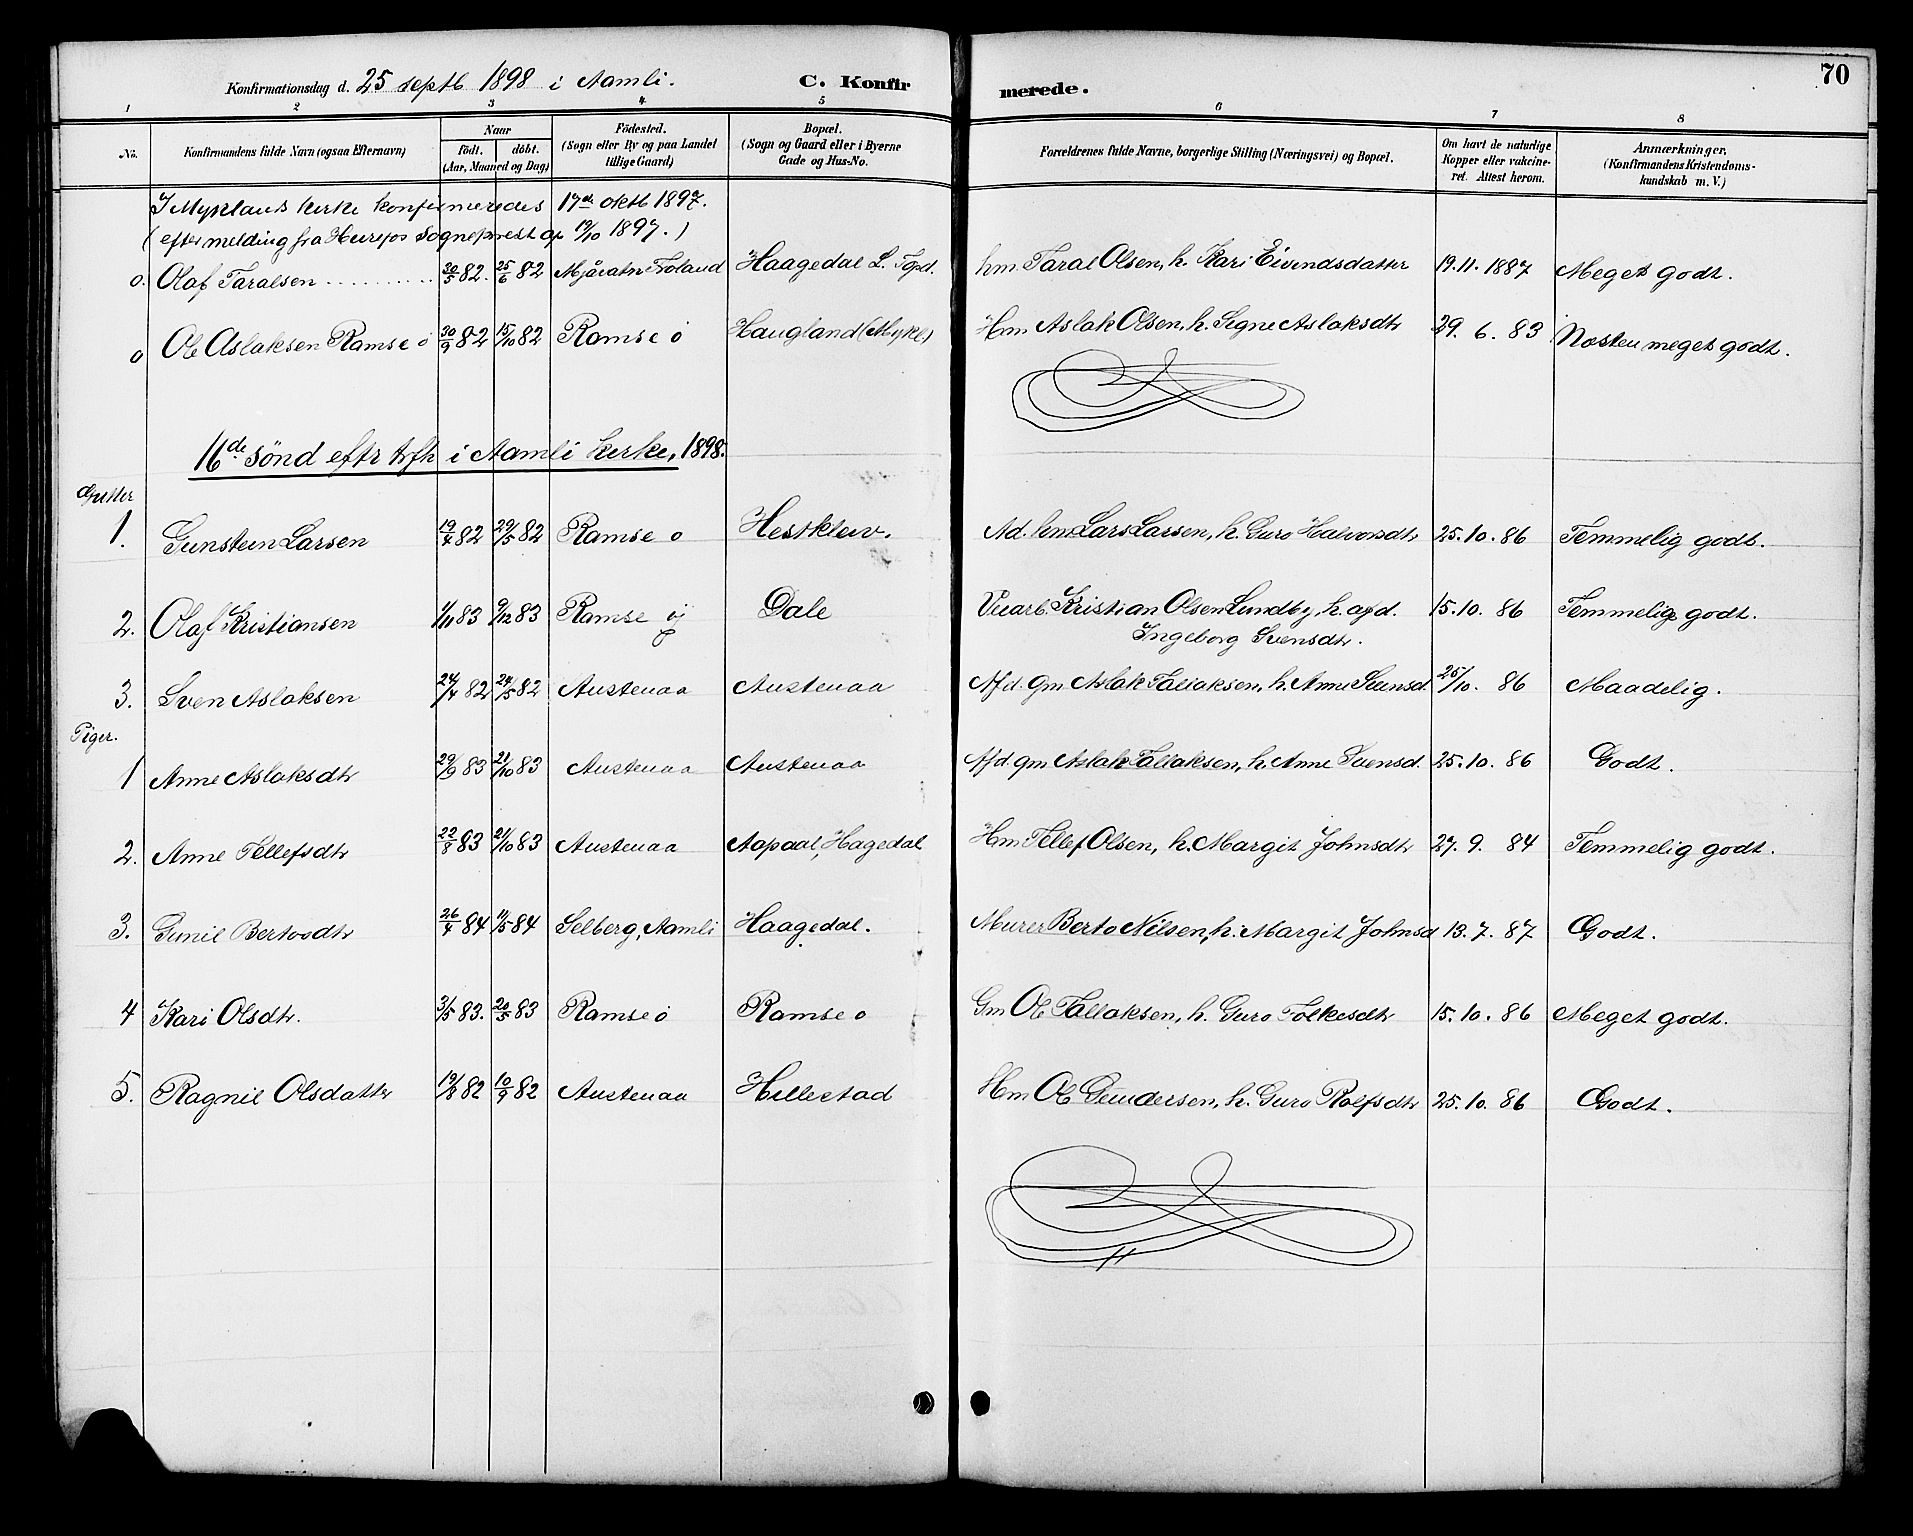 70
Konfirmationsdag d. 25 septb 1898 i Aamli. C. Konfirmerede.
1 2 3 4 5 6 7 8
No. Konfirmandens fulde Navn (ogsaa Efternavn) Naar født. døbt. (Aar, Maaned og Dag) Fødested. (Sogn eller By og paa Landet tillige Gaard) Bopæl. (Sogn og Gaard eller i Byerne Gade og Hus-No. Forældrenes fulde Navne, borgerlige Stilling (Næringsvei) og Bopæl. Om havt de naturlige Kopper eller vakcineret. Attest herom. Anmærkninger, (Konfirmandens Kristendomskundskab m. V.)
I Myklands kirke konfirmeredes 17de oktb 1897.
(efter melding fra sogneprest 19/10 1897.)
o. Olaf Taralsen 30/5 82. 25/6 82 Mjåvatn Froland Haagedal hm. Taral Olsen, h. Kari Eivendsdatter 19.11.1887 Meget godt.
o Ole Aslaksen Ramseø 30/9 82 15/10 82 Ramseø Haugland (Mykl) Hm Aslak Olsen, h. Signe Aslaksdtr 29.6.83 Næsten meget godt.
16de sønd eftr trfh i Aamli kirke, 1898.
Gutter
1. Gunsteen Larsen 19/4 82 29/5 82 Ramseø Hestklev. Ad. hm Lars Larsen, h. Guro Halvorsdtr 25.10.86 Temmelig godt.
2. Olaf Kristiansen 1/11 83 9/12 83 Ramseø Dale Kristian Olsen Lundby, h. afd.
Ingeborg Svensdtr. 15.10.86 Temmelig godt.
3. Sven Aslaksen 24/4 82 24/5 82 Austenaa Austenaa Afd. gm Aslak Tallaksen, h. Anne Svensd. 25/10.86 Maadelig.
Piger.
1 Anne Aslaksdtr 29/9 83 21/10 83 Austenaa Austenaa Afd. gm Aslak Tallaksen, h. Anne Svensd. 25.10.86 Godt.
2. Anne Tellefsdtr 22/8 83 21/10 83 Austenaa Aapaal, Hagedal Hm Tellef Olsen, h. Margit Johnsdtr 27.9.84 Temmelig godt.
3. Gunil Bertosdtr 26/4 84 11/5 84 Selberg, Aamli Haagedal. Murer Berto Nilsen, h. Margit Johnsd 13.7.87 Godt.
4 Kari Olsdtr. 3/5 83. 20/5 83 Ramseø Ramseø Gm Ole Tallaksen, h. Guro Folkesdtr 15.10.86 Meget godt.
5. Ragnil Olsdattr 19/8 82 10/9 82 Austenaa Hillestad Hm Ole Gundersen, h. Guro Rolfsdtr 25.10.86 Godt.